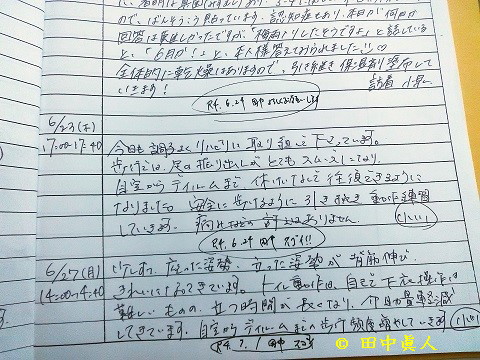 ので、ばんそうこう貼っています。認知症もあり、本日が何日か
回答は難しかったですが「梅雨入りしたそうですよ」と話していると
と、「6月か!」と、本人様答えておられました!!
全体的に乾燥はありますので、引き続き保湿剤塗布して
いきます!
R4.6.24 田中
6/23(木)
17:00-17:40
今日も調子よくリハビリに取り組んで下さっています。
歩行では、足の振り出しがとてもスムーズになり、
自室からデイルームまで休けいなしで往復できるように
なりました。安全に歩けるように引き続き動作練習
していきます。痛みなどの訴えはありません。
R4.6.24 田中
6/27(月)
14:00-14:40
座った姿勢、立った姿勢が背筋伸び、
きれいになってきています。トイレ動作は、自己で下衣操作は
難しいものの、立つ時間が長くなり、介助量軽減
してきています。自室からデイルームまでの歩行頻度増やしていきます
R4.7.1 田中
© 田中眞人